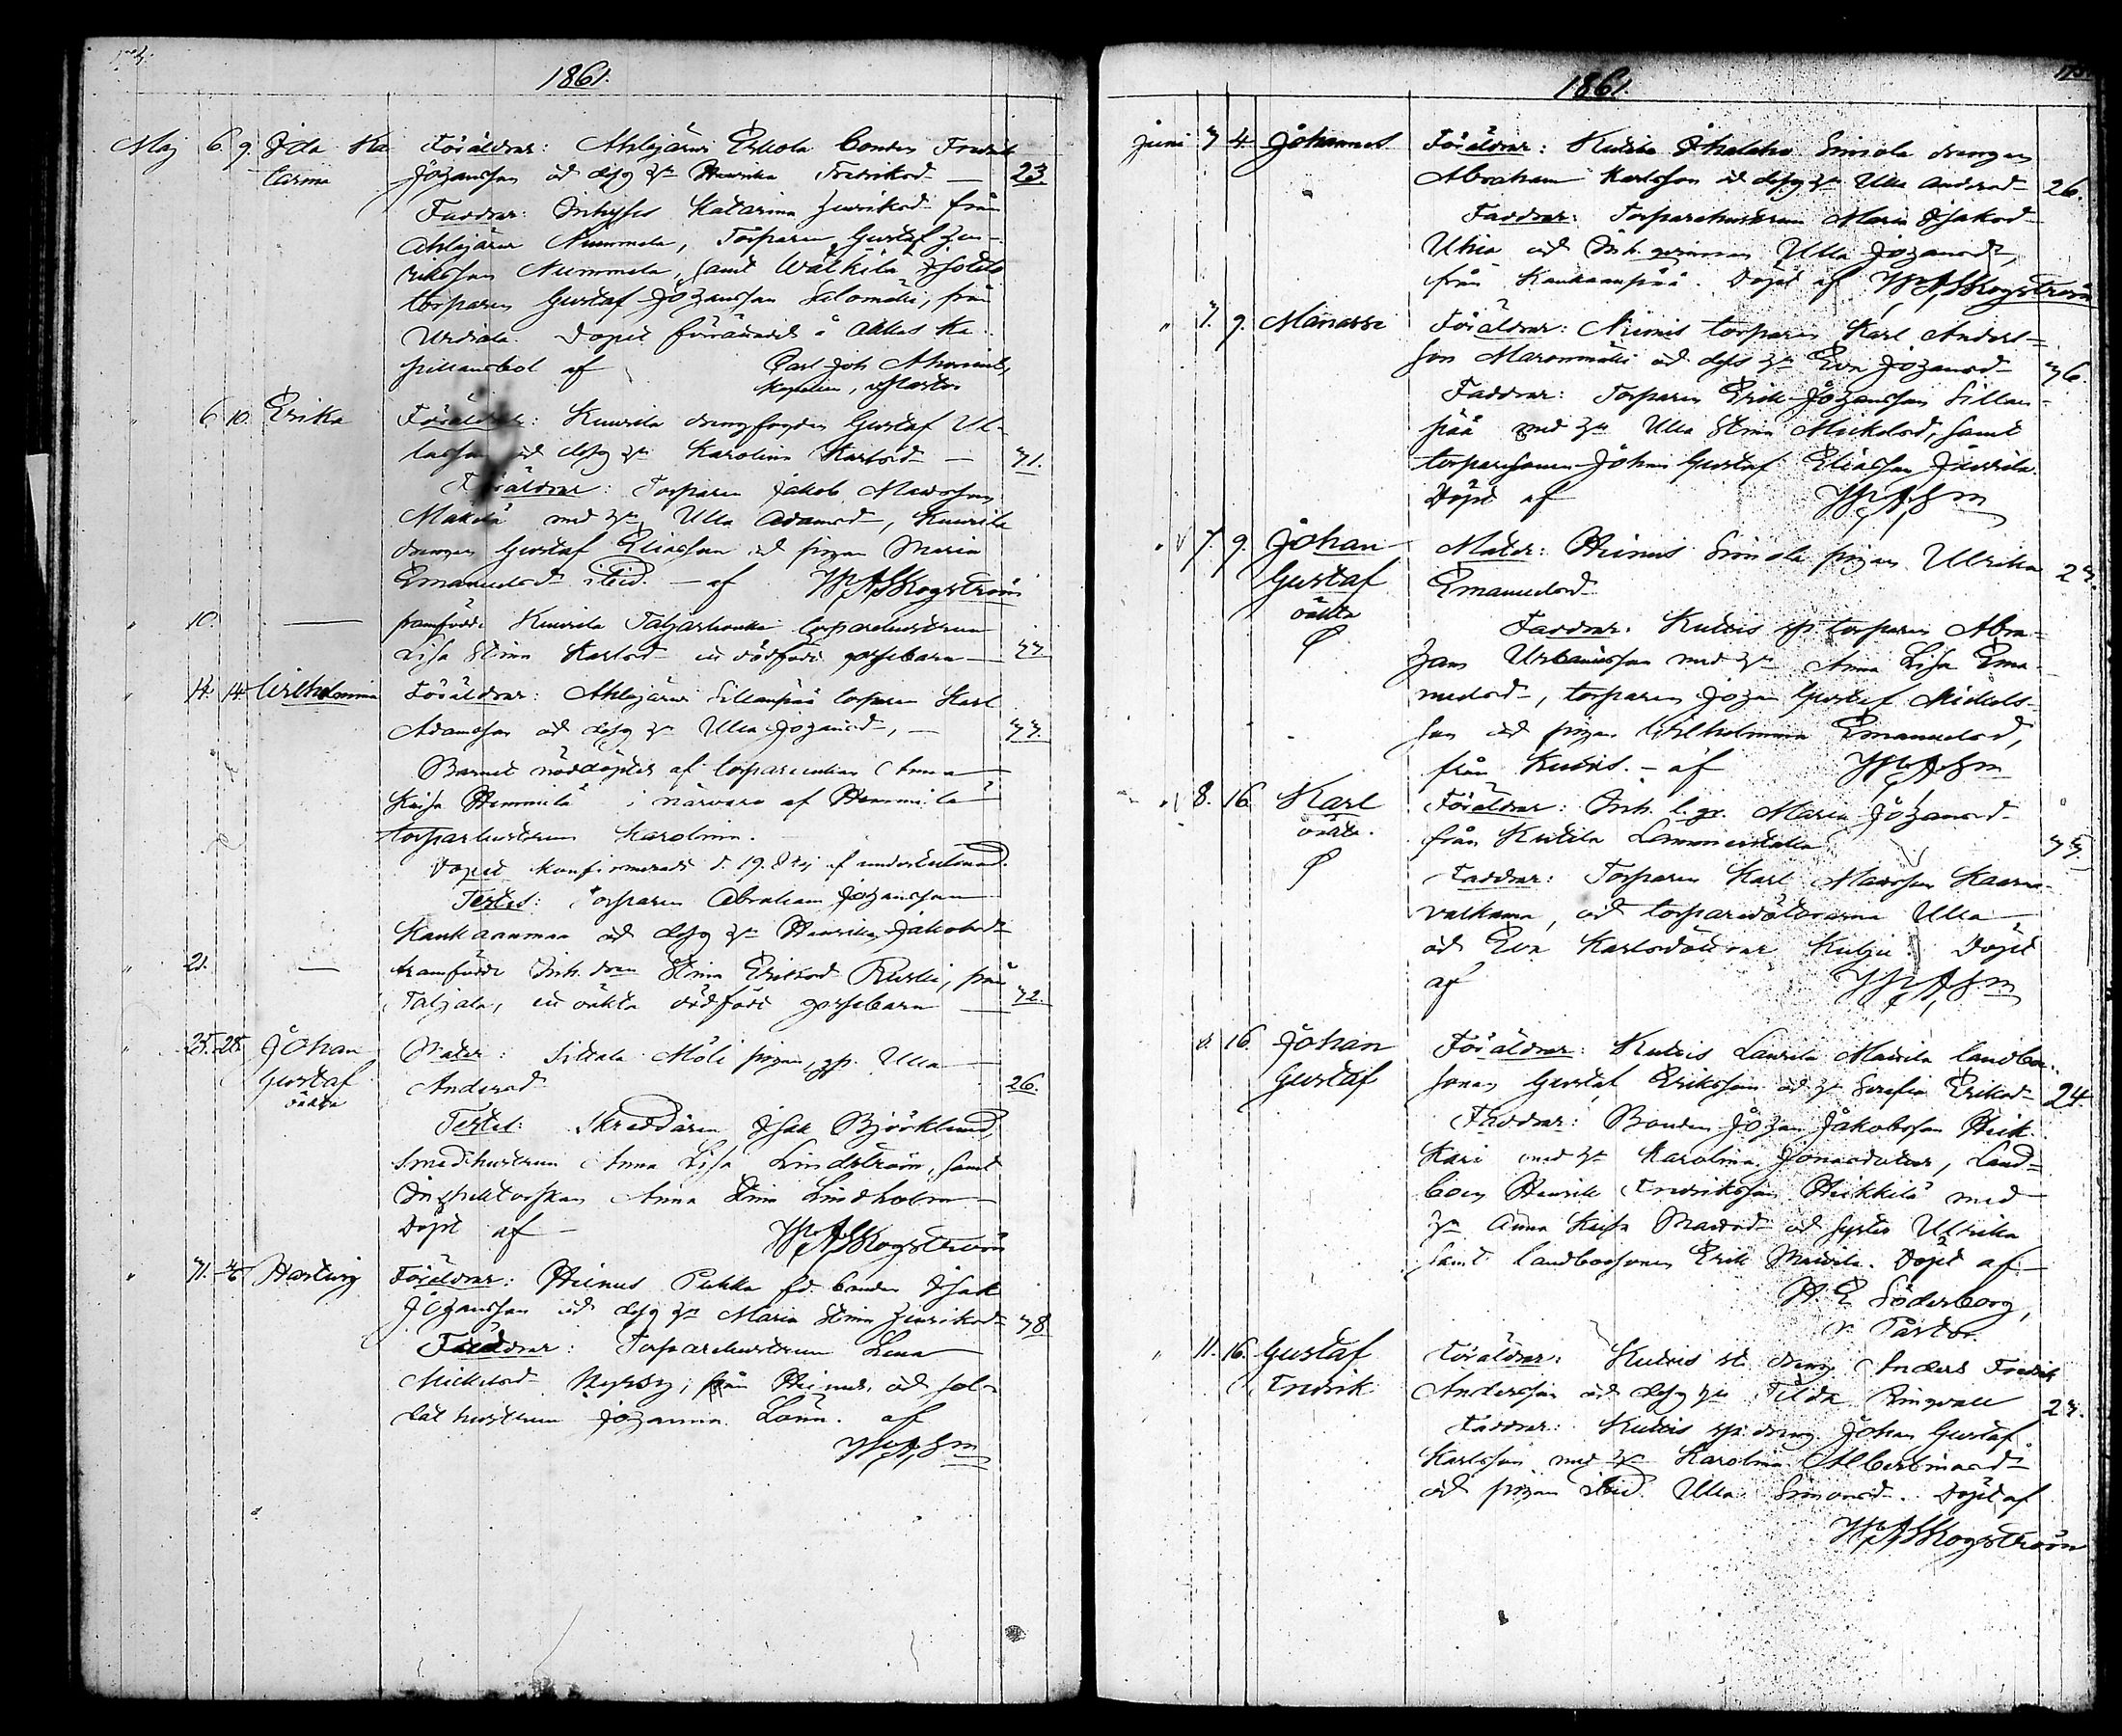 1861.
Maj 6. 9. Ida Ka- Föräldrar: Ahlajärvi Erkola bonden Fredrik
tarina Johansson och dess h:u Henrika Fredriksd 23.
Faddrar: Inhyses Katarina Henriksd från
Ahlajärvi Nummela, Torparen Gustaf Hen-
riksson Nummela, samt Wälkilä
torparen Gustaf Johansson Salomäki, från
Urdiala. Dopet förrättadt i Akkas Ka-
pellansbol af Carl Joh
Kapellan, v. Pastor
" 6 10. Erika Föräldrar: Kuurila drängfogden Gustaf Ul-
lasson och dess h:u Karolina Karlsd 31.
Föräldrar: Torparen Jakob Mattsson
Mäkelä med h:u Ulla Adamsd, Kuurila
drängen Gustaf Eliasson och pigan Maria
Emanuelsd ibid. – af WASkogström
" 10. — framfödde Kuurila torparehustrun
Lisa Stina Karlsd ett dödfödt gossebarn 33.
" 14. 14. Wilhelmina Föräldrar: Ahlajärvi Sillanpää torparen Karl
Adamsson och dess h:u Ulla Johansd, 33.
Barnet nöddöptes af torpareenkan Anna
Kaisa Hemmilä i närvaro af Hemmilä
torparhustrun Karolina.
Dopet konfirmerades d. 19. af undertecknad.
Testes: Torparen Abraham Johansson
Kankaanmaa och dess h:u Henrika Jakobsd
" 21. — framfödde Inh. Stina Eriksd från
Taljala, ett oäkta dödfödt gossebarn 32.
" 25. 28. Johan Mater: Sittala Möli pigan, Ulla
Gustaf Andersd 26.
oäkta
Testes: Skräddaren Isak Björklund,
smedshustrun Anna Lisa Lindström, samt
Inspektorskan Anna Stina Lindholm
Döpt af WASkogström
" 31. Hartvig Föräldrar: Heinus Pukka fd. bonden Isak
Johansson och dess h:u Maria Stina Henriksd 38
Faddrar: Torparehustrun Lena
Mickelsd från Heinus, och sol-
dat hustrun Johanna Lönn. af
WASm
1861.
Juni 3 4 Johannes Föräldrar: Simola drängen
Abraham Karlsson och dess h:u Ulla Andersd 26.
Faddrar: Torparehustrun Maria Isaksd
och Inh. qvinnan Ulla Johansd,
från Kankaanpää. Döpt af WASkogström
" 7. 9. Manasse Föräldrar: Niemis torparen Karl Anders-
son och dess h:u Eva Johansd 36.
Faddrar: Torparen Erik Johansson Sillan-
pää med h:u Ulla Stina Mickelsd, samt
torparesonen Johan Gustaf Eliasson
Döpt af WASm
" 7. 9. Johan Mater: Heinus Simola pigan Ulrika 23.
Gustaf Emanuelsd
oäkta
Faddrar: Kutvis torparen Abra-
ham Urbansson med h:u Anna Lisa Ema-
nuelsd, torparen Johan Gustaf Mickels-
son och pigan Wilhelmina Emanuelsd,
från Kutvis. – af WASm
" 8. 16. Karl Föräldrar: Inh. l. qv. Maria Johansd
oäkta. från Kutila 35.
Faddrar: Torparen Karl Mattsson Kaarna-
valkama, och torparedöttrarna Ulla
och Eva Karlsdöttrar Kulju. Döpt
af WASm
8. 16. Johan Föräldrar: Kutvis Laurila Mattila landbo-
Gustaf sonen Gustaf Eriksson och h:u Serafia Eriksd 24.
Faddrar: Bonden Johan Jakobsson Heik
Kari med h:u Karolina Jonasdotter, Land-
boen Henrik Fredriksson Heikkilä med
h:u Anna Kaisa Mattsd och syster Ulrika
samt landbosonen Erik Mattila. Döpt af
H. E Söderborg,
v. Pastor.
" 11. 16. Gustaf Föräldrar: Kutvis dräng Anders Fredrik
Fredrik Andersson och dess h:u Tilda Ringvall 23.
Faddrar: Kutvis dräng Johan Gustaf
Karlsson med h:u Karolina Albertinasd
och pigan ibid. Ulla Simonsd. Döpt af
WASkogström